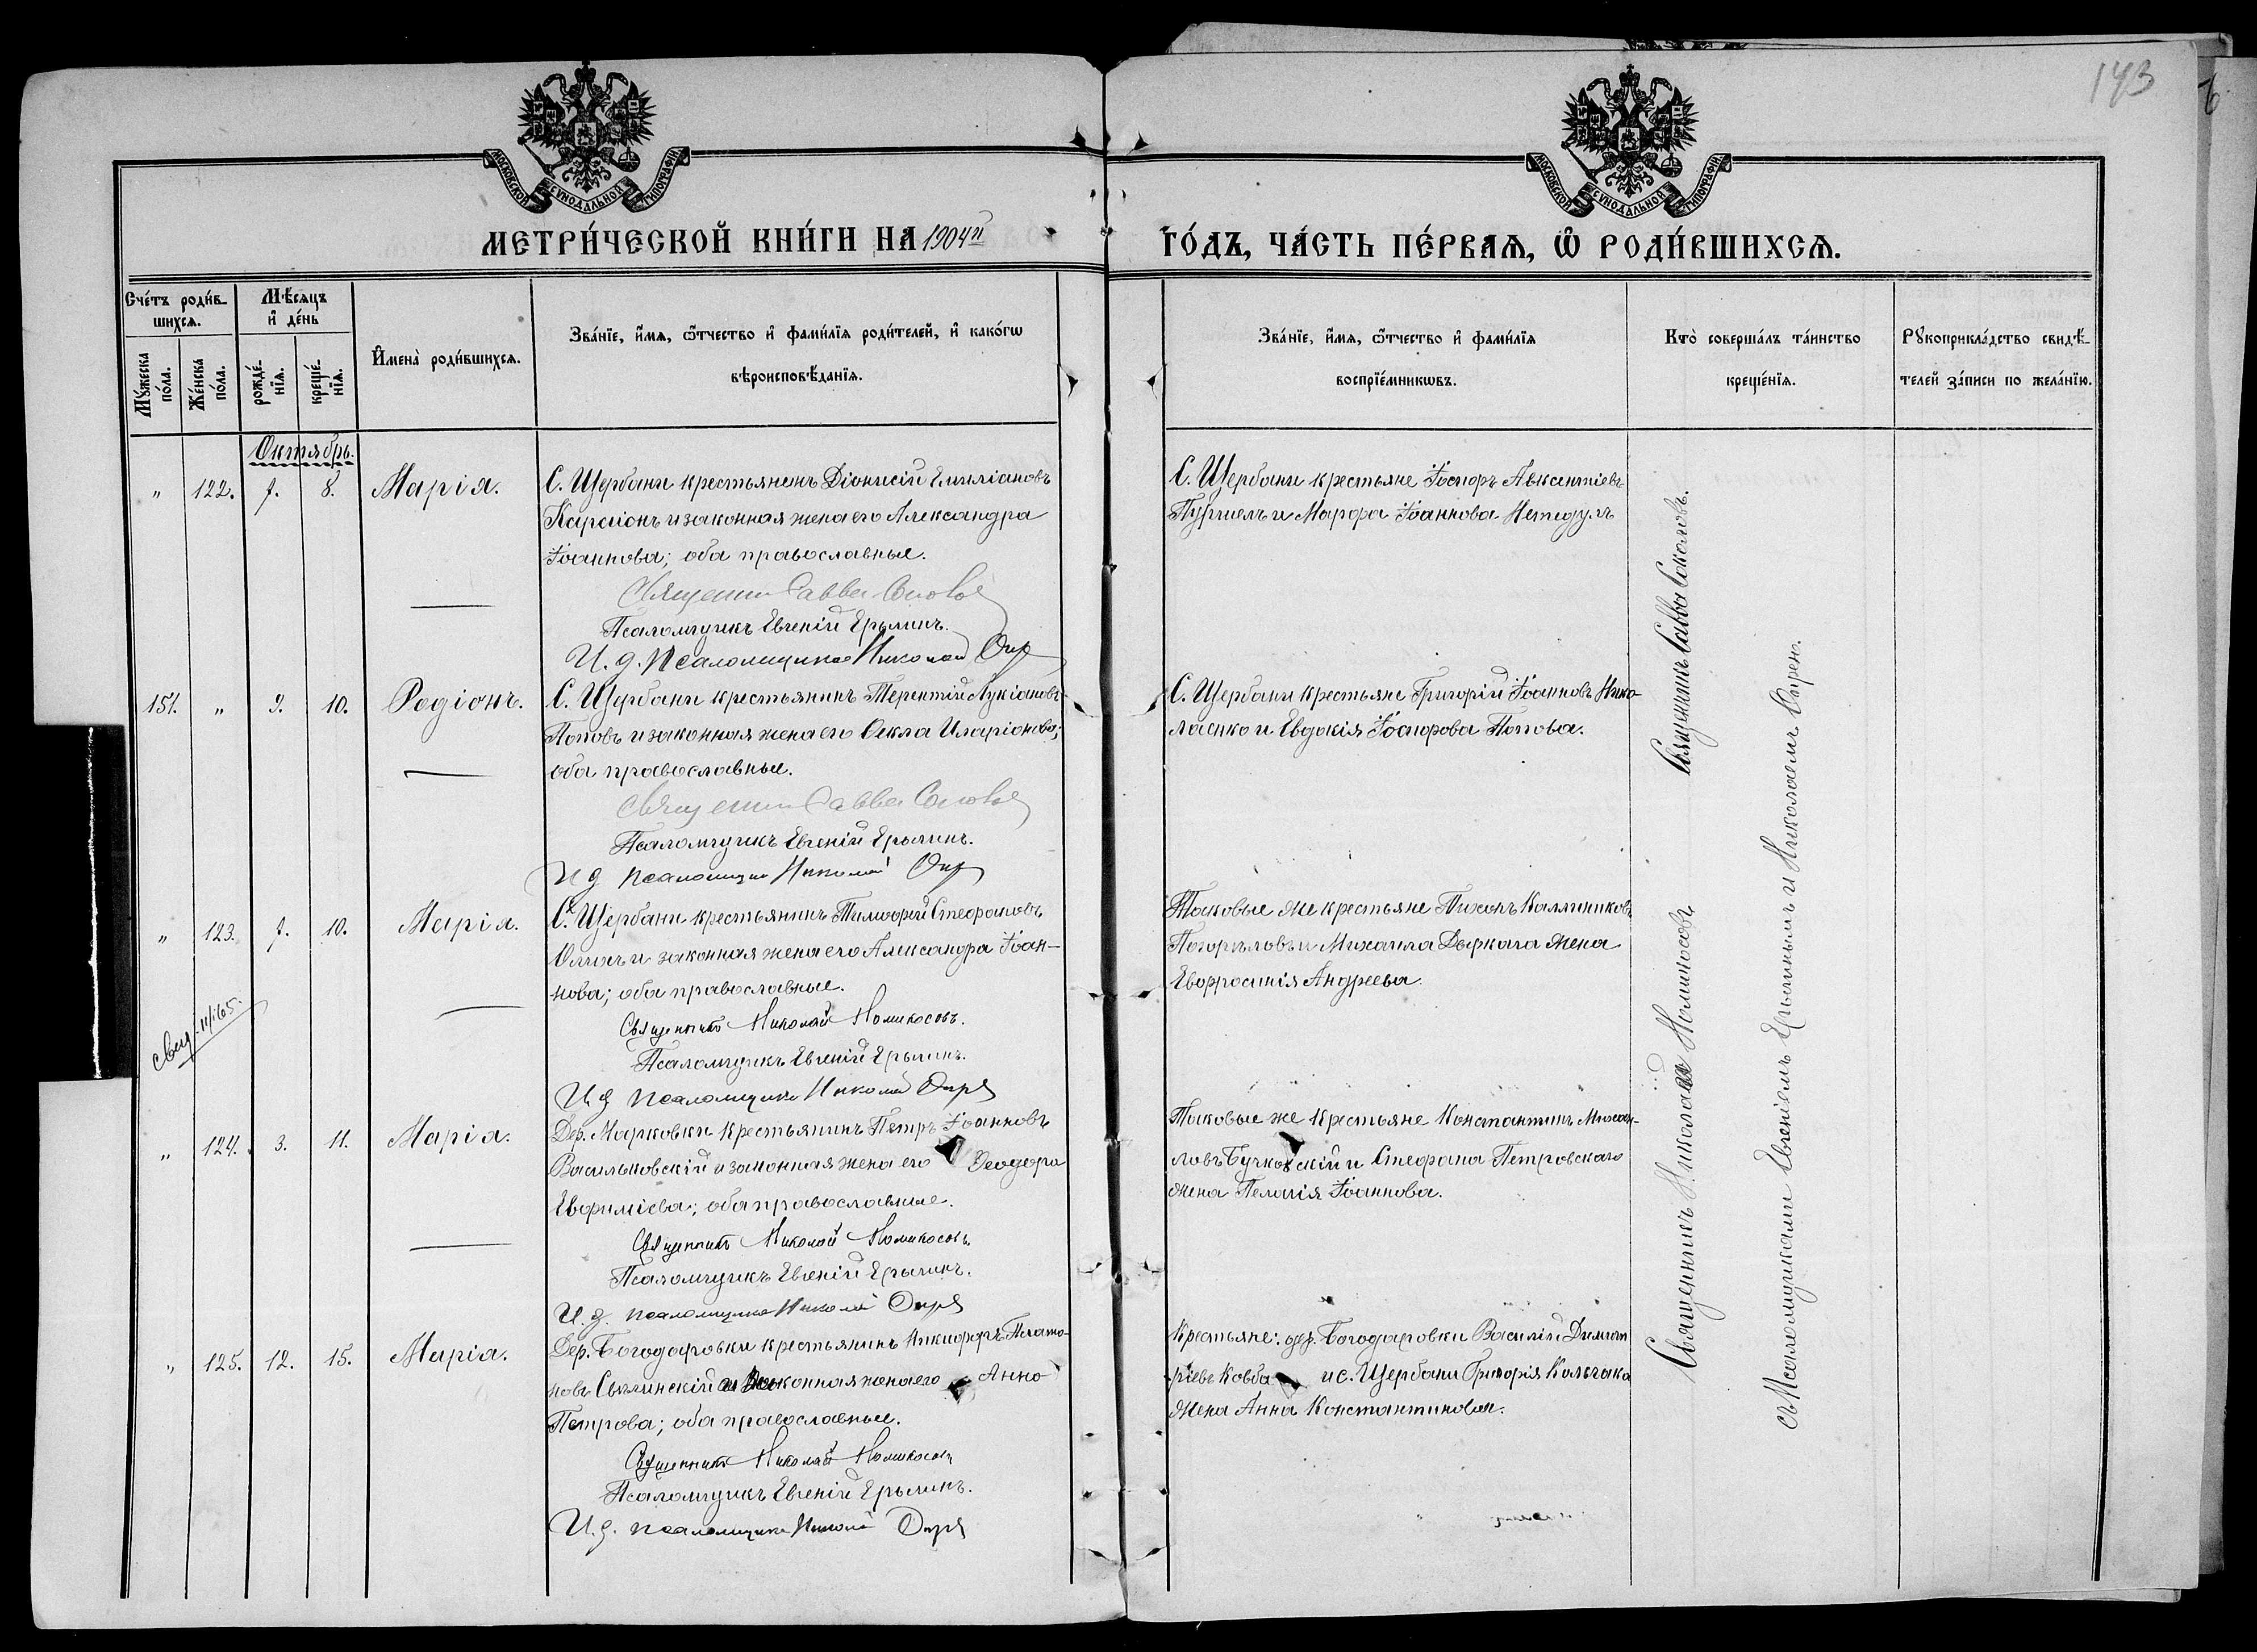 143
МОСКОВСКОЙ СѴНОДАЛЬНОЙ ТИПОГРАФІИ
МОСКОВСКОЙ СѴНОДАЛЬНОЙ ТИПОГРАФІИ
МЕТРИ́ЧЕСКОЙ КНИ́ГИ НА 1904й
ГО́ДЪ, ЧА́СТЬ ПЕ́РВАѦ, Ѡ҆ РОДИ́ВШИХСѦ.
Сче́тъ роди́в-
шихсѧ.
Мꙋ́жеска по́ла.
Же́нска по́ла.
Мѣ́сѧцъ
и҆ де́нь
рожде́-
нїѧ.
креще́-
нїѧ.
И҆мена̀ роди́вшихсѧ.
Зва́нїе, и҆́мѧ, ѻ҆́тчество и҆ фами́лїѧ роди́телей, и҆ како́гѡ
вѣроисповѣ́данїѧ.
Зва́нїе, и҆́мѧ, ѻ҆́тчество и҆ фами́лїѧ
воспрїе́мникѡвъ.
Кто̀ соверша́лъ та́инство
креще́нїѧ.
Рꙋкоприкла́дство свидѣ́-
телей за́писи по жела́нїю.
Октябрь.
" 122. 7. 8. Марія.
С. Щербани крестьянинъ Діонисій Емиліановъ
и законная жена его Александра
Іоаннова; оба православные.
Священникъ Савва Соколовъ
Псаломщикъ Евгеній Ерыминъ.
И. д. псаломщика Николай
С. Щербани крестьяне Іосифъ Авксентіевъ
и Марфа Іоаннова
151. " 9. 10. Родіонъ.
С. Щербани крестьянинъ Терентій Лукіановъ
Поповъ и законная жена его Ѳекла Иларіонова;
оба православные.
Священникъ Савва Соколовъ
Псаломщикъ Евгеній Ерыминъ.
И д псаломщика Николай
С. Щербани крестьяне Григорій Іоанновъ Нико-
лаенко и Евдокія Іосифова Попова.
" 123. 7. 10. Марія.
С. Щербани крестьянинъ Тимоѳей Стефановъ
и законная жена его Александра Іоан-
нова; оба православные.
Священникъ Николай Номикосовъ.
Псаломщикъ Евгеній Ерыминъ.
И д псаломщика Николай
Таковые же крестьяне Тихонъ Каллиниковъ
Погорѣловъ и Михаила жена
Евфросинія Андреева.
свид.
" 124. 3. 11. Марія.
Дер. Марковки крестьянинъ Петръ Іоанновъ
Васильковскій и законная жена его Ѳеодора
Евфиміева; оба православные.
Священникъ Николай Номикосовъ.
Псаломщикъ Евгеній Ерыминъ.
И. д. псаломщика Николай
Таковые же крестьяне Константинъ Михаи-
ловъ Бучковскій и Стефана Петровскаго
жена Пелагія Іоаннова.
" 125. 12. 15. Марія.
Дер. Богодаровки крестьянинъ Никифоръ Плато-
новъ и законная жена его Анна
Петрова; оба православные.
Священникъ Николай Номикосовъ
Псаломщикъ Евгеній Ерыминъ.
И. д. псаломщика Николай
Крестьяне: дер. Богодаровки Василій Димит-
ріевъ Ковба и с. Щербани Григорія Колчака
жена Анна Константинова.
Священникъ Савва Соколовъ.
Священникъ Николай Номикосовъ
съ Псаломщиками Евгеніемъ Ерыминымъ и Николаемъ